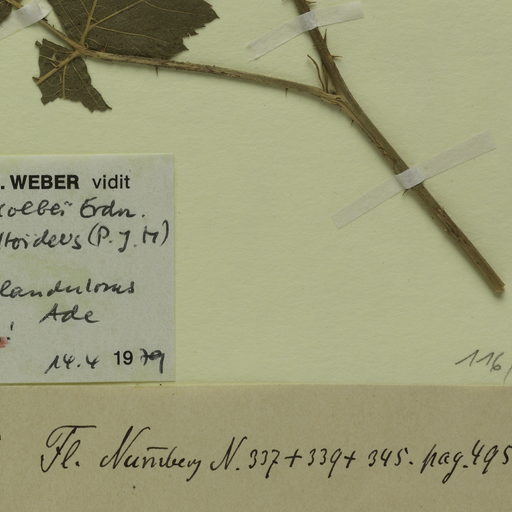 . WEBER vidit
Erdn.
(P. J. M)
landulosus
Ade
!
14.4 1979
116/
Fl. Nürnberg N. 337 + 339 + 345. pag. 495